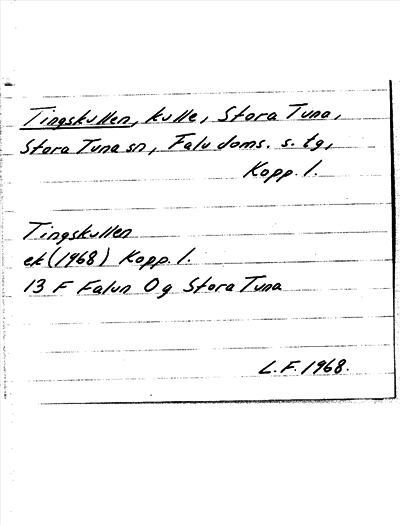 Tingskullen, kulle, Stora Tuna,
Stora Tuna sn, Falu doms. s. tg,
Kopp. l.
Tingskullen
ek (1968) Kopp. l.
13 F Falun 0g Stora Tuna
L.F. 1968.